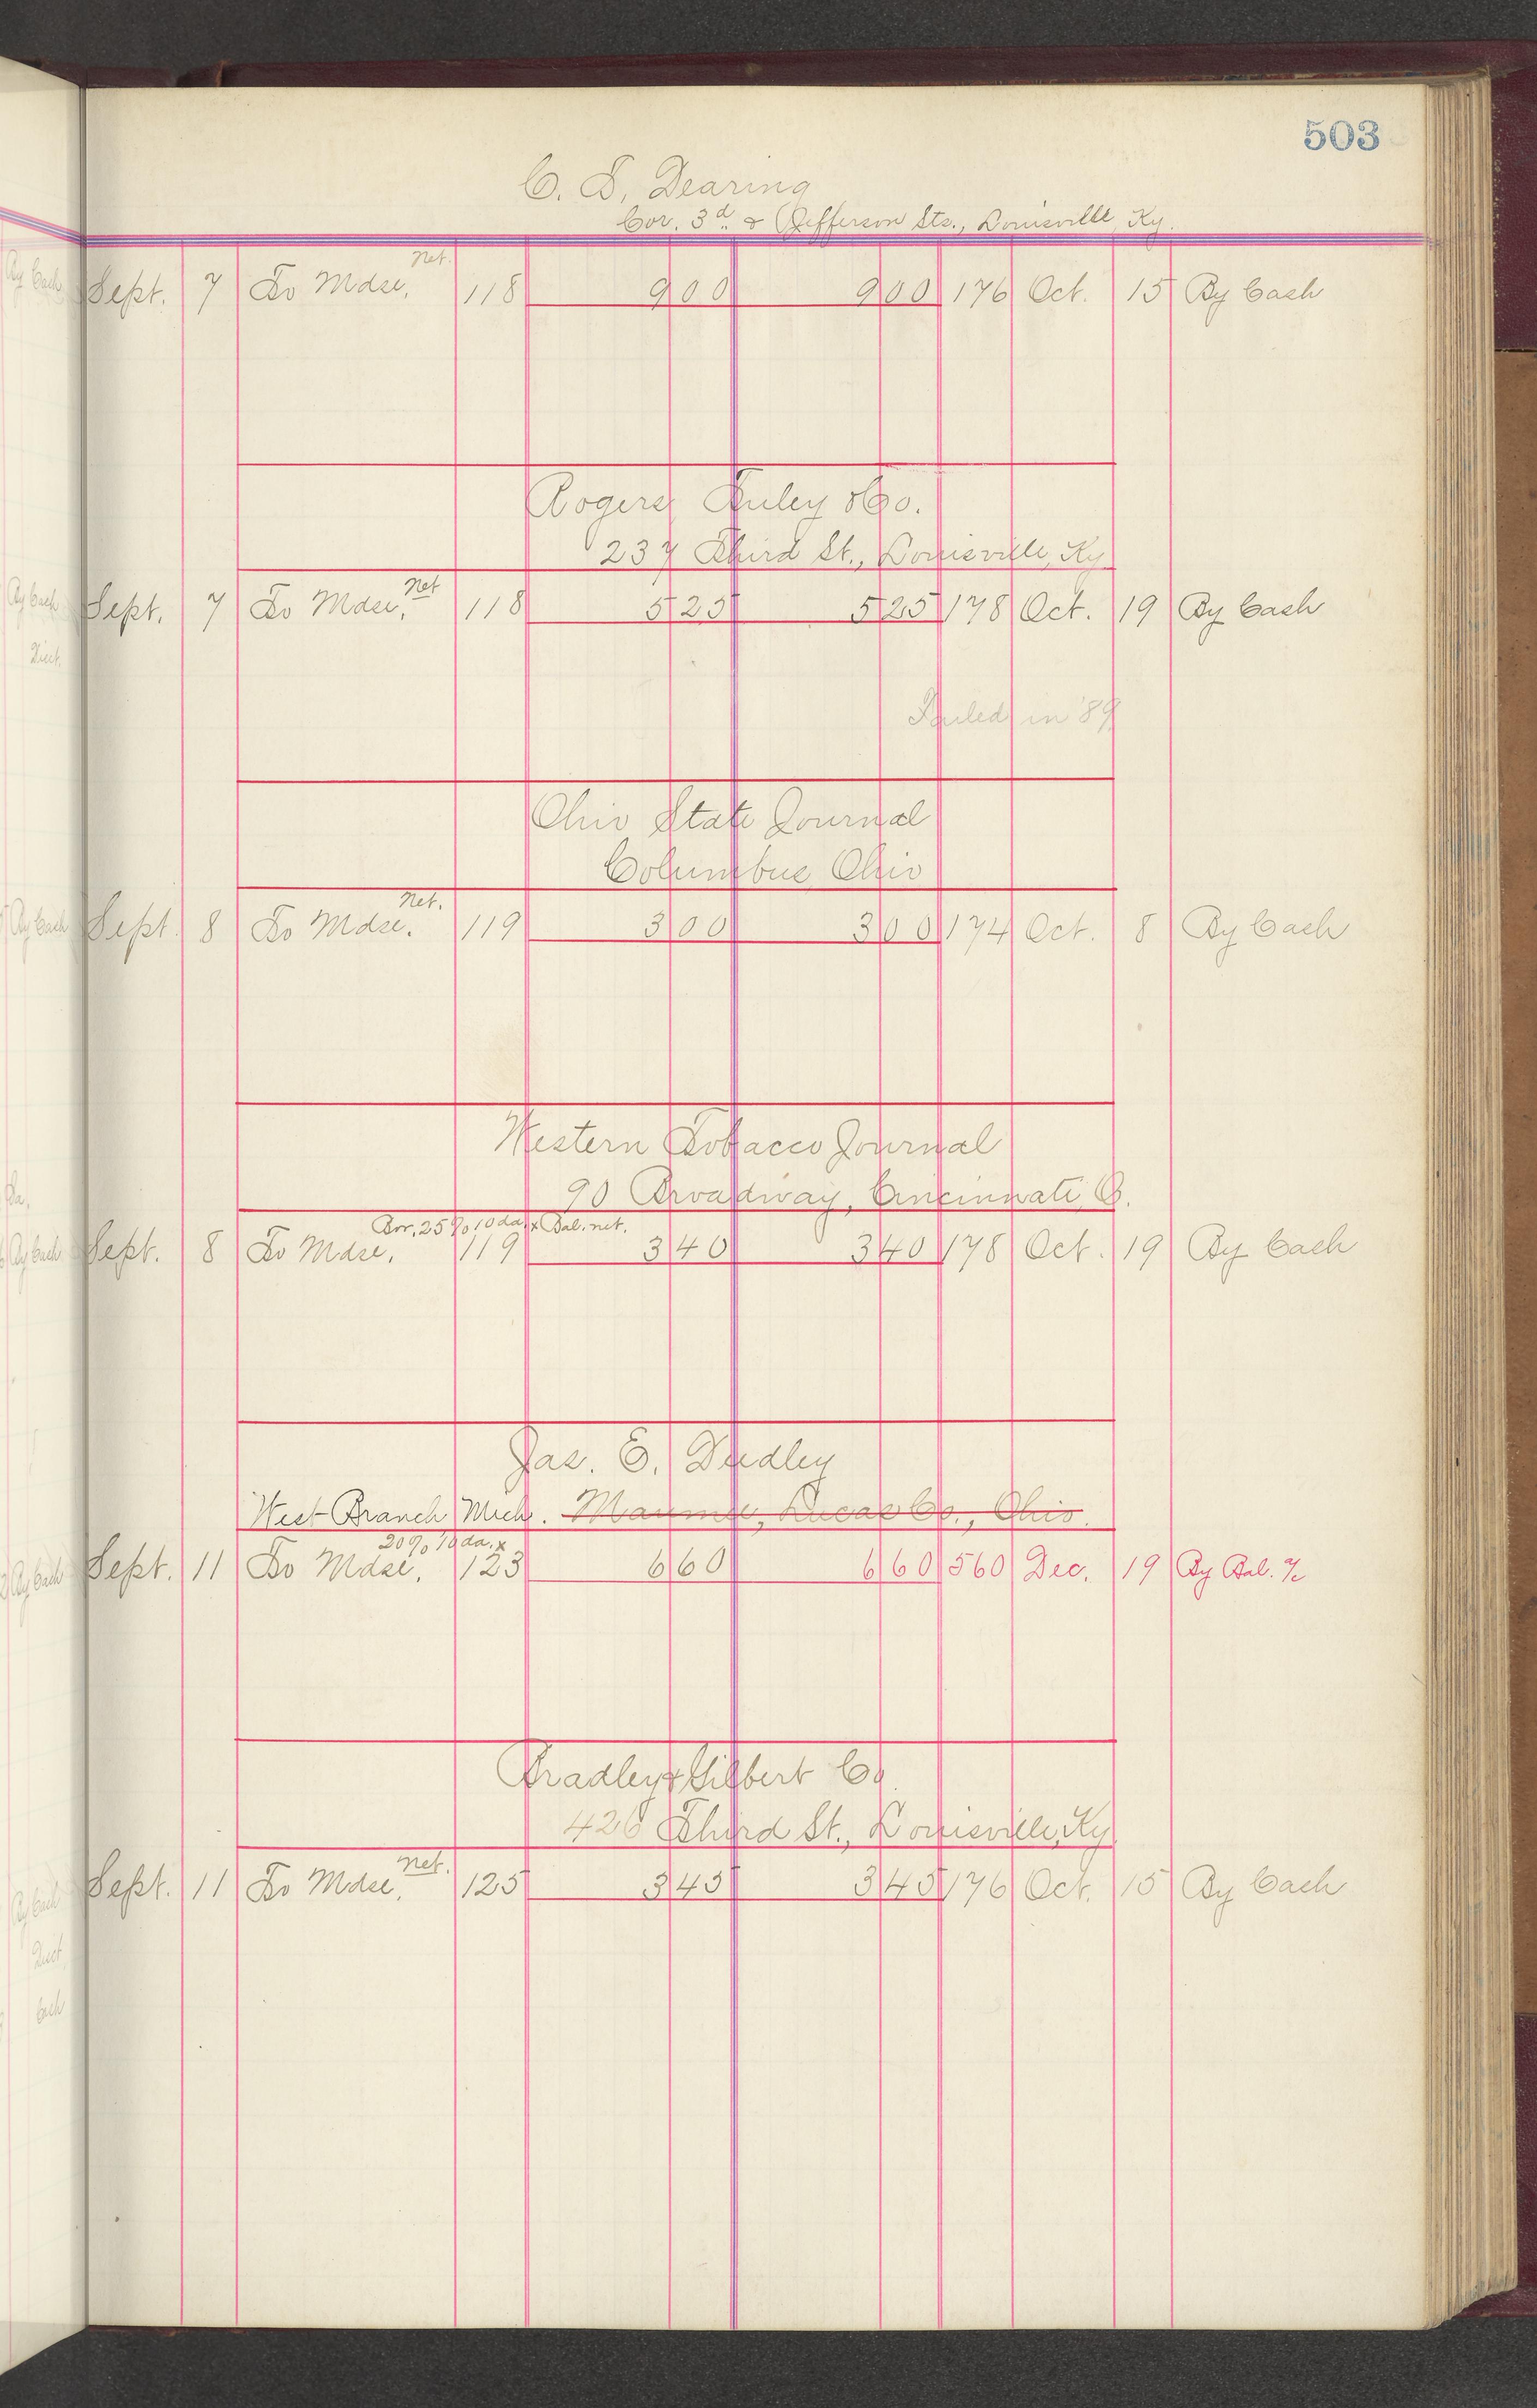 503
C. T. Dearing
Cor. 3d & Jefferson Sts., Louisville, Ky.
Net.
Sept. 7 To Mdse. 118 9 00 9 00 176 Oct. 15 By Cash
Rogers, Tuley & Co.
237 Third St., Louisville, Ky
Net
Sept. 7 To Mdse. 118 5 25 5 25 178 Oct. 19 By Cash
Failed in '89
Ohio State Journal
Columbus, Ohio
Net.
Sept. 8 To Mdse. 119 3 00 3 00 174 Oct. 8 By Cash
Western Tobacco Journal
90 Broadway, Cincinnati, O.
Bor. 25% 10 da. & Bal. net.
Sept. 8 To Mdse. 119 3 40 3 40 178 Oct. 19 By Cash
Jas. E. Dudley
West Branch Mich. Maumee, Lucas Co., Ohio.
20% 10 da. x
Sept. 11 To Mdse. 123 6 60 6 60 560 Dec. 19 By Bal. %c
Bradley & Gilbert Co.
426 Third St., Louisville, Ky
Net.
Sept. 11 To Mdse. 125 3 45 3 45 176 Oct. 15 By Cash